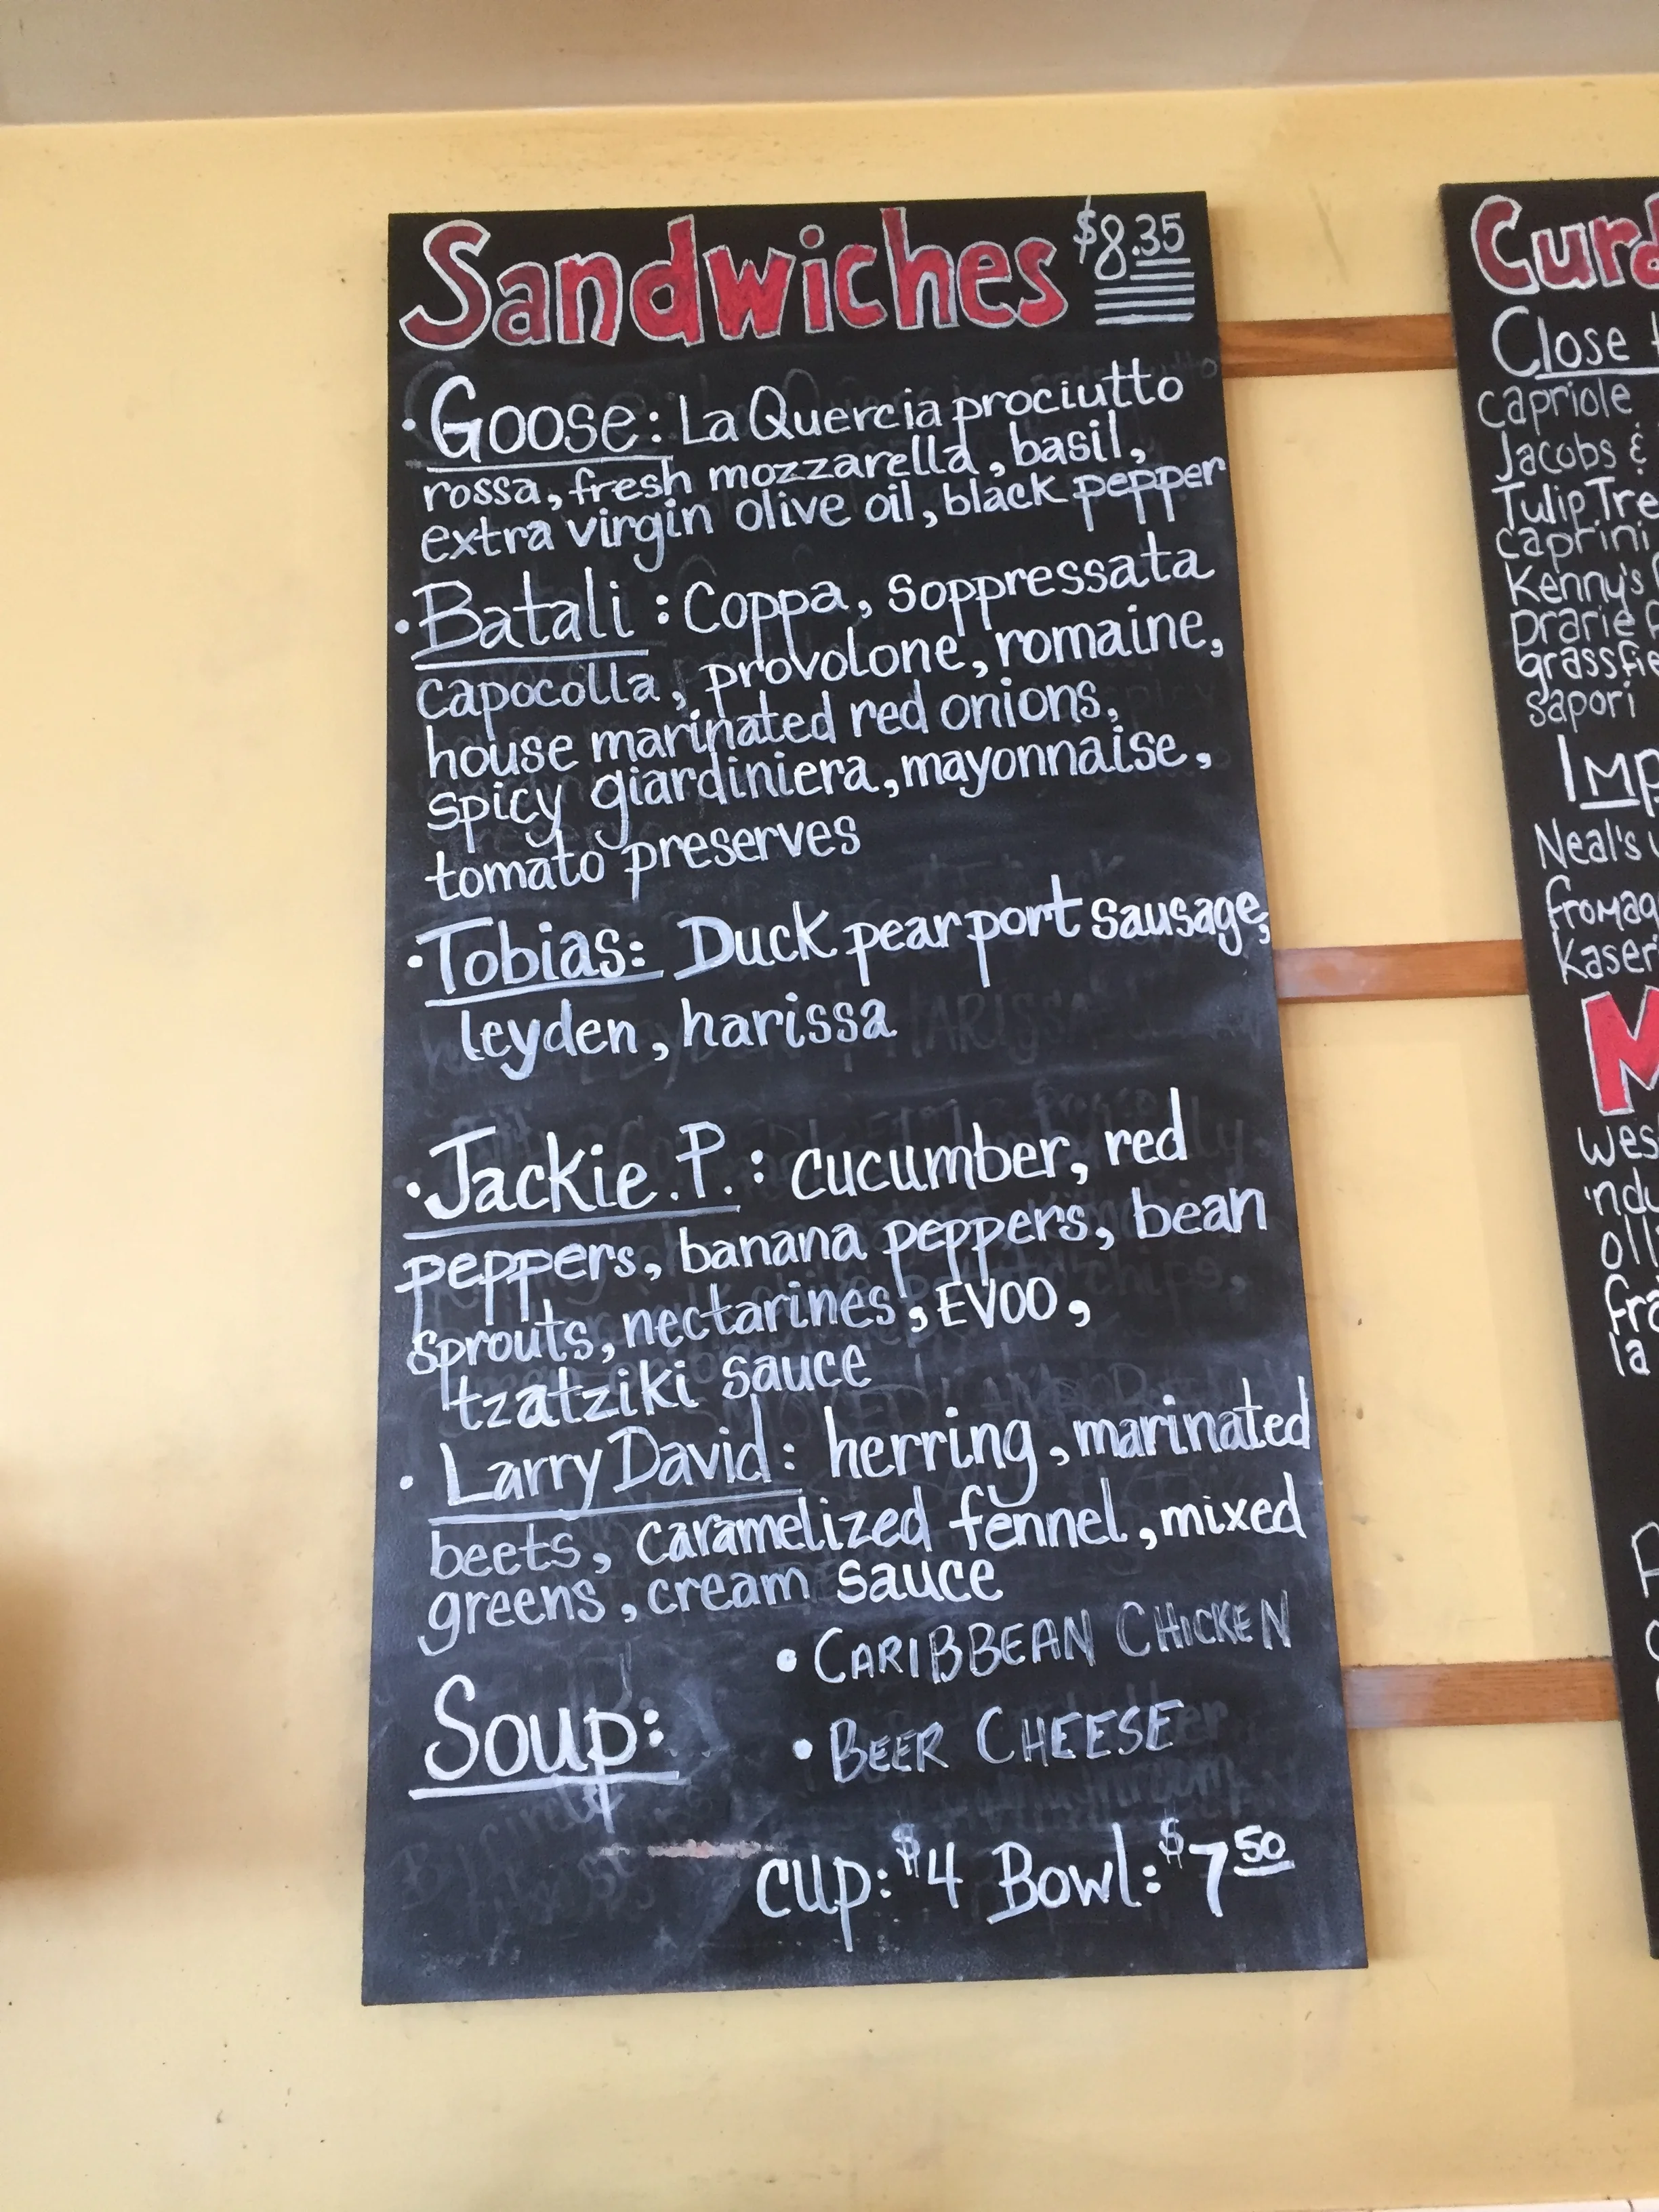 Sandwiches $8.35
• Goose: La Quercia prociutto
rossa, fresh mozzarella, basil,
extra virgin olive oil, black pepper
• Batali: Coppa, Soppressata
capocolla, provolone, romaine,
house marinated red onions,
spicy giardiniera, mayonnaise,
tomato preserves
• Tobias: Duck pear port sausage,
leyden, harissa
• Jackie.P.: cucumber, red
peppers, banana peppers, bean
sprouts, nectarines, EVOO,
tzatziki sauce
• Larry David: herring, marinated
beets, caramelized fennel, mixed
greens, cream sauce
Soup:
• CARIBBEAN CHICKEN
• BEER CHEESE
cup: $4 Bowl: $7 50
Curd
Close
capriole
Jacobs &
Tulip Tre
caprini
Kenny's
prarie
grassfie
sapori
Imp
Neal's
fromag
Kaser
M
wes
'ndu
olli
fra
la